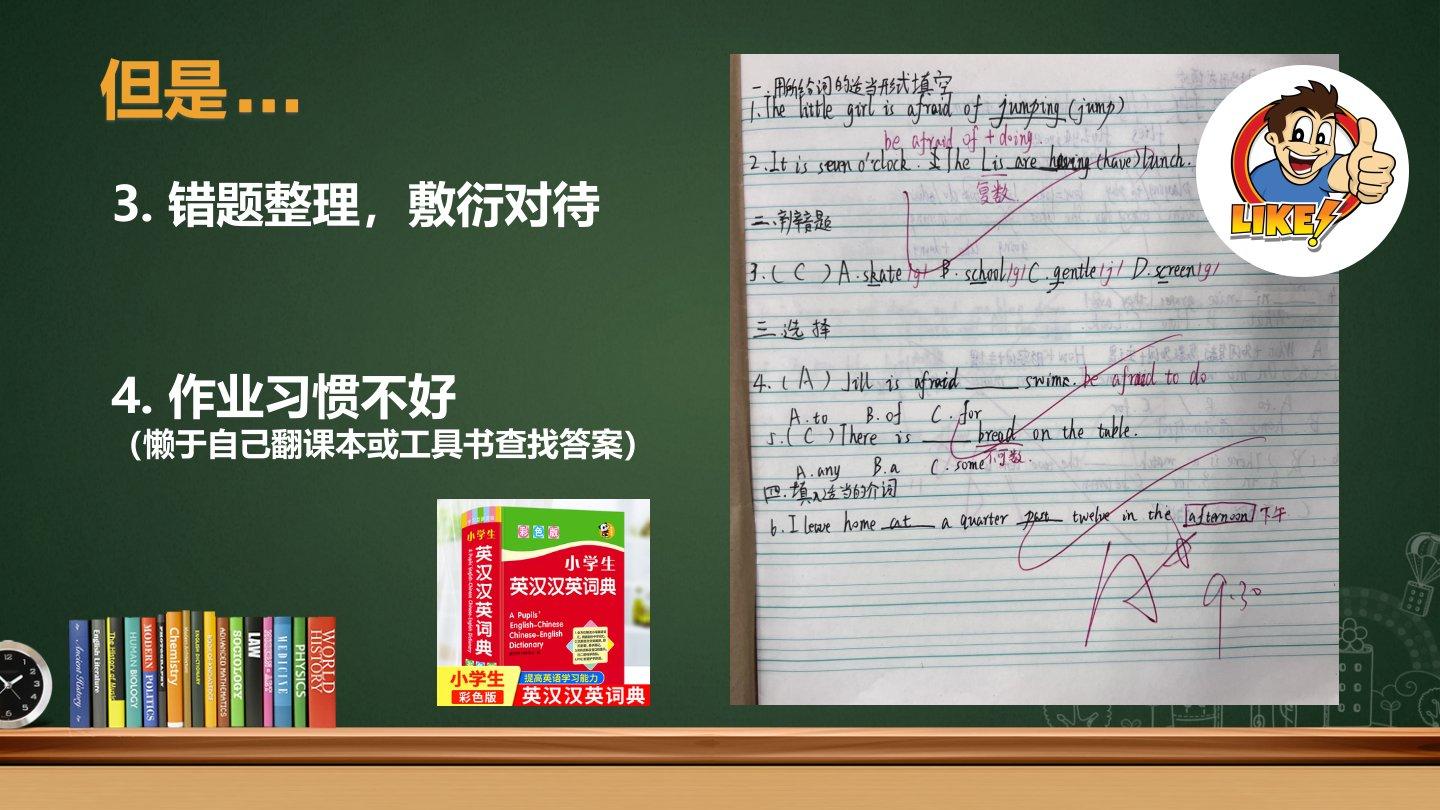 但是...
3. 错题整理，敷衍对待
4. 作业习惯不好
（懒于自己翻课本或工具书查找答案）
一.用所给词的适当形式填空
1.The little girl is afraid of jumping (jump)
be afraid of + doing.
2.It is seven o'clock. The Lis are having (have) lunch.
复数
二.辨音题
3.( C ) A.skate /g/ B.school /g/ C.gentle /j/ D.screen /g/
三.选择
4.( A ) Jill is afraid ____ swims. be afraid to do
A.to B.of C.for
5.( C ) There is ____ bread on the table.
不可数
A.any B.a C.some
四.填入适当的介词
6.I leave home at a quarter past twelve in the afternoon 下午
A
9.30
LIKE!
小学生
英汉汉英词典
彩色版
小学生
英汉汉英词典
A Pupils'
English-Chinese
Chinese-English
Dictionary
小学生
彩色版
提高英语学习能力
英汉汉英词典
Ancient History
English Literature
The History of Music
HUMAN BIOLOGY
MODERN POLITICS
Chemistry
ENGLISH DICTIONARY
ADVANCED MATHEMATICS
SOCIOLOGY
LAW
MEDICINE
PHYSICS
WORLD HISTORY